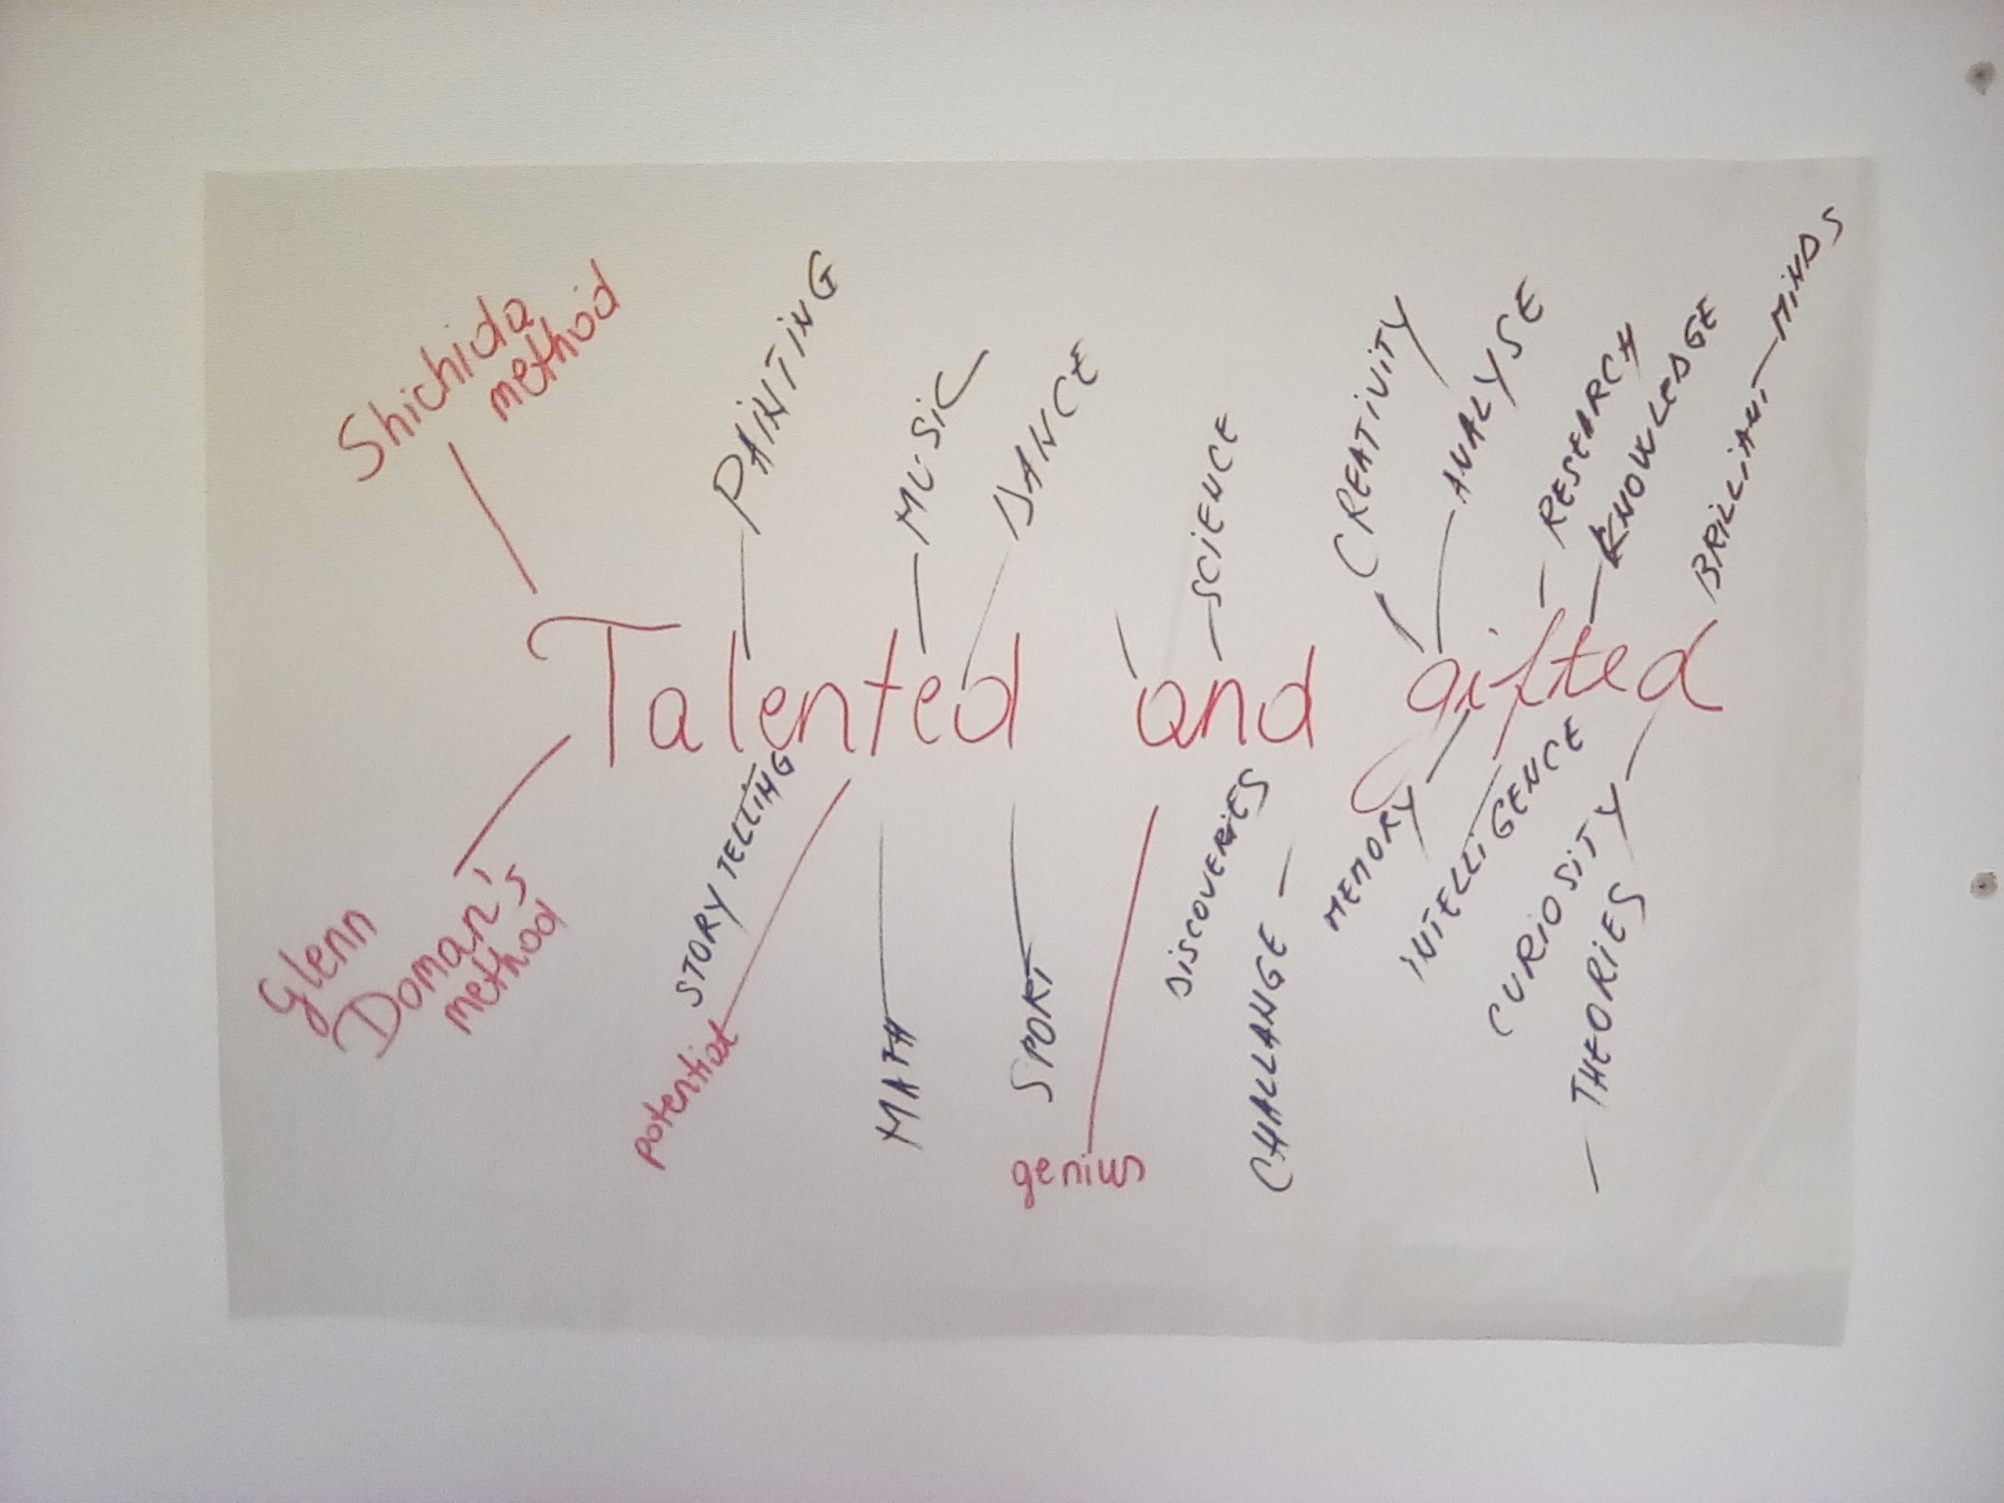 Shichida
method
PAINTING
MUSIC
DANCE
SCIENCE
CREATIVITY
ANALYSE
RESEARCH
KNOWLEDGE
BRILIANT-MINDS
Talented and gifted
Glenn
Doman's
method
STORY TELLING
potential
MATH
SPORT
genius
DISCOVERIES
CHALLANGE
MEMORY
INTELLIGENCE
CURIOSITY
THEORIES